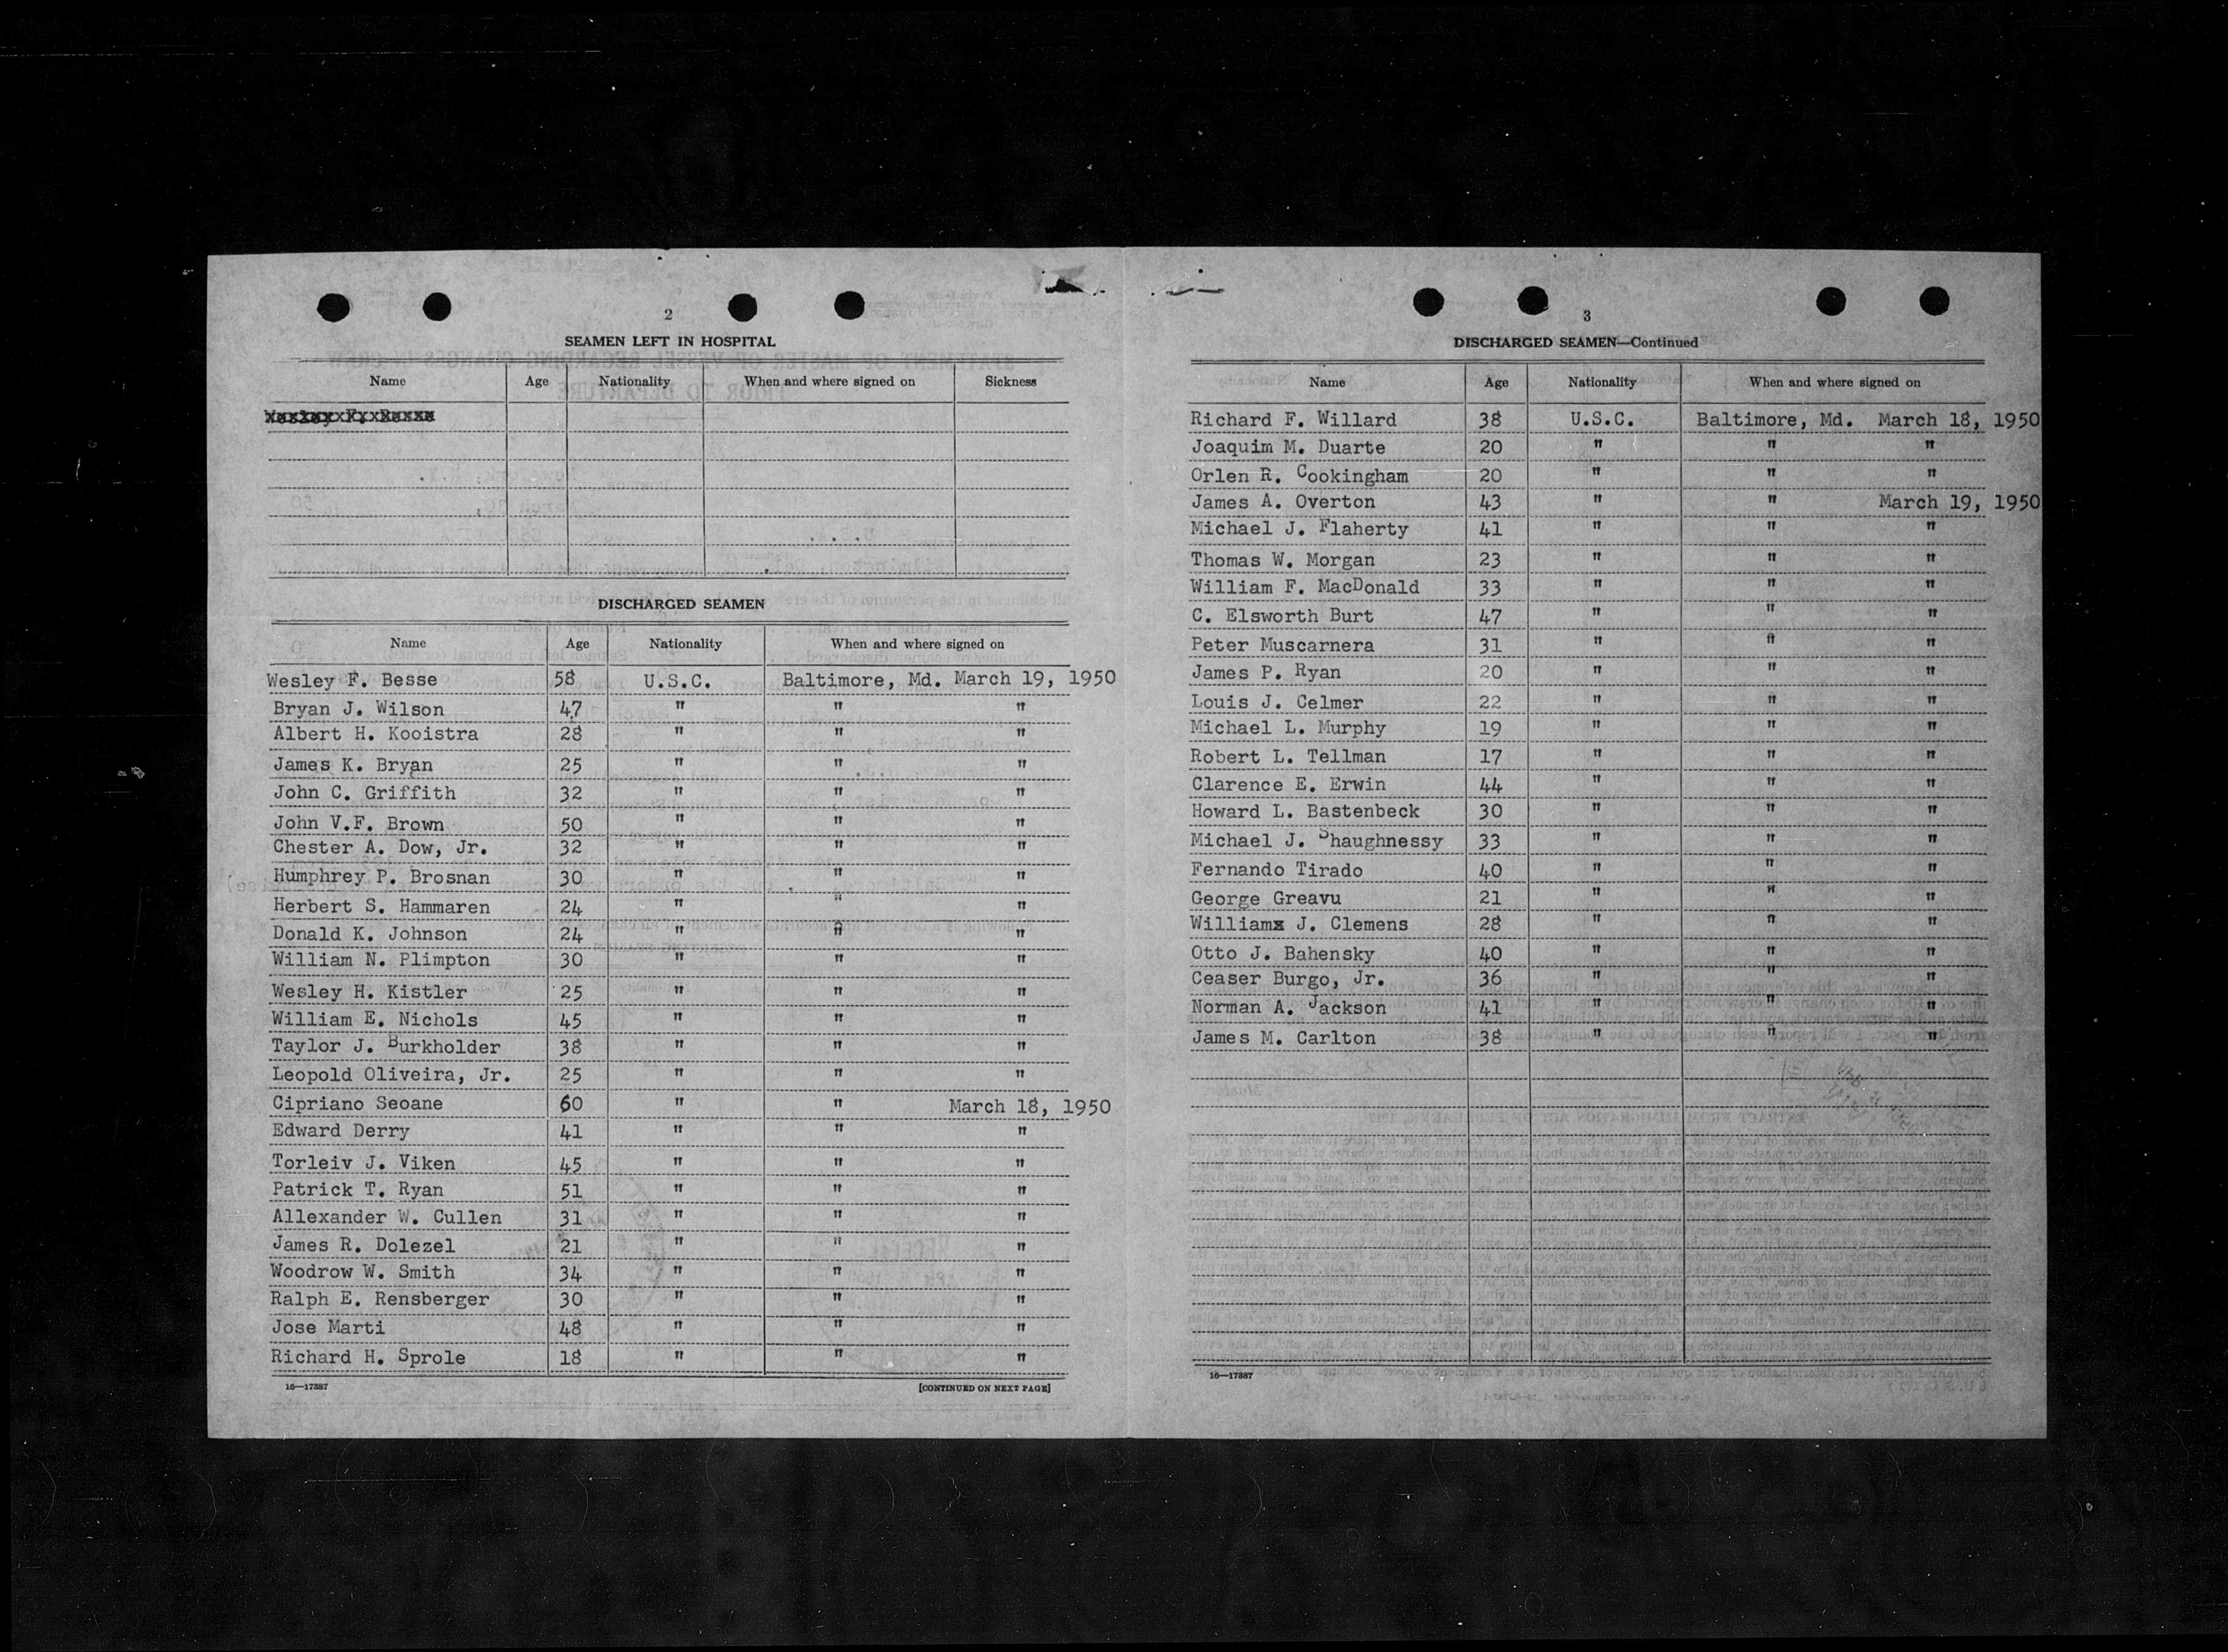 2
SEAMEN LEFT IN HOSPITAL
Name Age Nationality When and where signed on Sickness
DISCHARGED SEAMEN
Name Age Nationality When and where signed on
Wesley F. Besse 58 U.S.C. Baltimore, Md. March 19, 1950
Bryan J. Wilson 47 " " "
Albert H. Kooistra 28 " " "
James K. Bryan 25 " " "
John C. Griffith 32 " " "
John V.F. Brown 50 " " "
Chester A. Dow, Jr. 32 " " "
Humphrey P. Brosnan 30 " " "
Herbert S. Hammaren 24 " " "
Donald K. Johnson 24 " " "
William N. Plimpton 30 " " "
Wesley H. Kistler 25 " " "
William E. Nichols 45 " " "
Taylor J. Burkholder 38 " " "
Leopold Oliveira, Jr. 25 " " "
Cipriano Seoane 60 " " March 18, 1950
Edward Derry 41 " " "
Torleiv J. Viken 45 " " "
Patrick T. Ryan 51 " " "
Allexander W. Cullen 31 " " "
James R. Dolezel 21 " " "
Woodrow W. Smith 34 " " "
Ralph E. Rensberger 30 " " "
Jose Marti 48 " " "
Richard H. Sprole 18 " " "
16—17387 [CONTINUED ON NEXT PAGE]
3
DISCHARGED SEAMEN—Continued
Name Age Nationality When and where signed on
Richard F. Willard 38 U.S.C. Baltimore, Md. March 18, 1950
Joaquim M. Duarte 20 " " "
Orlen R. Cookingham 20 " " "
James A. Overton 43 " " March 19, 1950
Michael J. Flaherty 41 " " "
Thomas W. Morgan 23 " " "
William F. MacDonald 33 " " "
C. Elsworth Burt 47 " " "
Peter Muscarnera 31 " " "
James P. Ryan 20 " " "
Louis J. Celmer 22 " " "
Michael L. Murphy 19 " " "
Robert L. Tellman 17 " " "
Clarence E. Erwin 44 " " "
Howard L. Bastenbeck 30 " " "
Michael J. Shaughnessy 33 " " "
Fernando Tirado 40 " " "
George Greavu 21 " " "
Williamx J. Clemens 28 " " "
Otto J. Bahensky 40 " " "
Ceaser Burgo, Jr. 36 " " "
Norman A. Jackson 41 " " "
James M. Carlton 38 " " "
16—17387